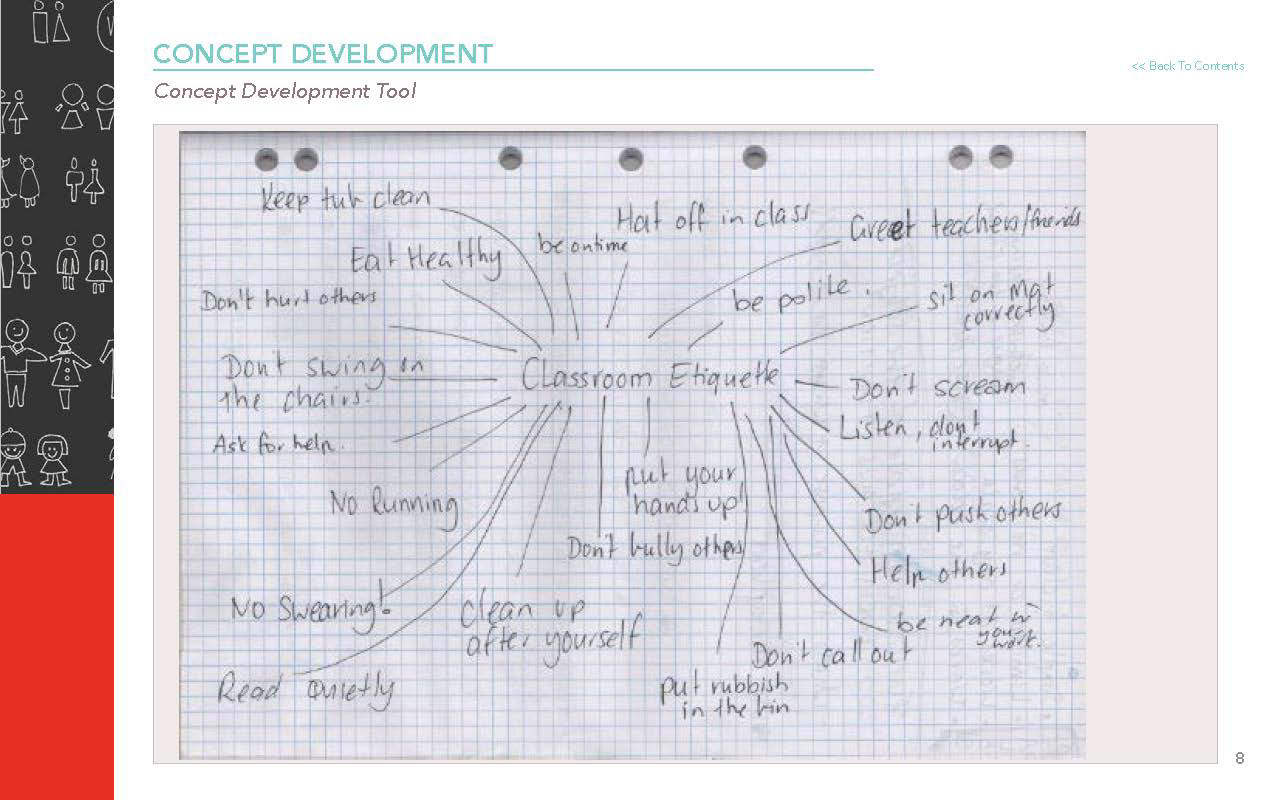 CONCEPT DEVELOPMENT
<< Back To Contents
Concept Development Tool
Keep tub clean
Hat off in class
Greet teachers/friends
be on time
Eat Healthy
Don't hurt others
be polite.
sit on Mat
correctly
Don't swing on
the chairs.
Classroom Etiquette
Don't scream
Ask for help.
Listen, don't
interrupt.
put your
hands up!
No Running
Don't push others
Don't bully others
Help others
No Swearing!
clean up
after yourself
be neat w
your
work.
Don't call out
Read Quietly
put rubbish
in the bin
8